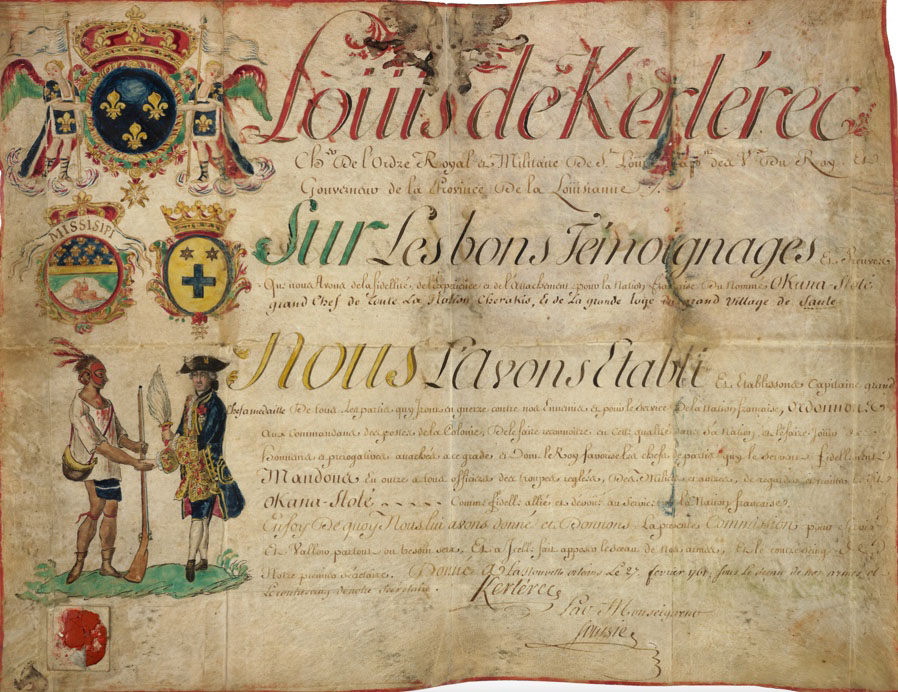 Loüis de Kerlérec
Chr. De l'Ordre Royal et Militaire De St. Louis, Capne. des Vx. Du Roy, et
Gouverneur de la Province De la Louisianne
MISSISIPI
Sur Les bons Témoignages Et Preuves
Que nous Avons de la fidellité, de l'experience et de l'Attachement pour la Nation française Du Nommé Okana-Stoté
grand Chef de toute La Nation Cherakis, Et de La grande Loge du grand Village de Sauté
Nous L'avons Etabli Et Etablissons Capitaine grand
Chef a medaille De tous Les partis quy Iront a guerre contre nos Ennemis, et pour le Service De la Nation française, Ordonnons
Aux Commandans des postes de la Colonie, De le faire reconnoitre en cette qualité dans Sa Nation, et le faire Jouir
honneurs et prérogatives attachés a ce grade, et Dont le Roy favorise Les chefs de partis quy le Servent fidellement
Mandons En outre a tous officiers des troupes reglées, Des Milices et autres, de regarder
Okana-Stoté Comme fidelle allié et dévoué au Service De la Nation française
En foy De quoy Nous lui avons donné et Donnons La présente Commission pour
Et Valloir partout ou besoin sera, Et a Icelle fait apposer le sceau de nos armes, et le contreseing
Notre premier Secrétaire. Donné a La Nouvelle orleans Le 27. fevrier 1761, sous le sceau de nos armes, et
Le contreseing de notre Secretaire.
Kerlérec
Par Monseigneur